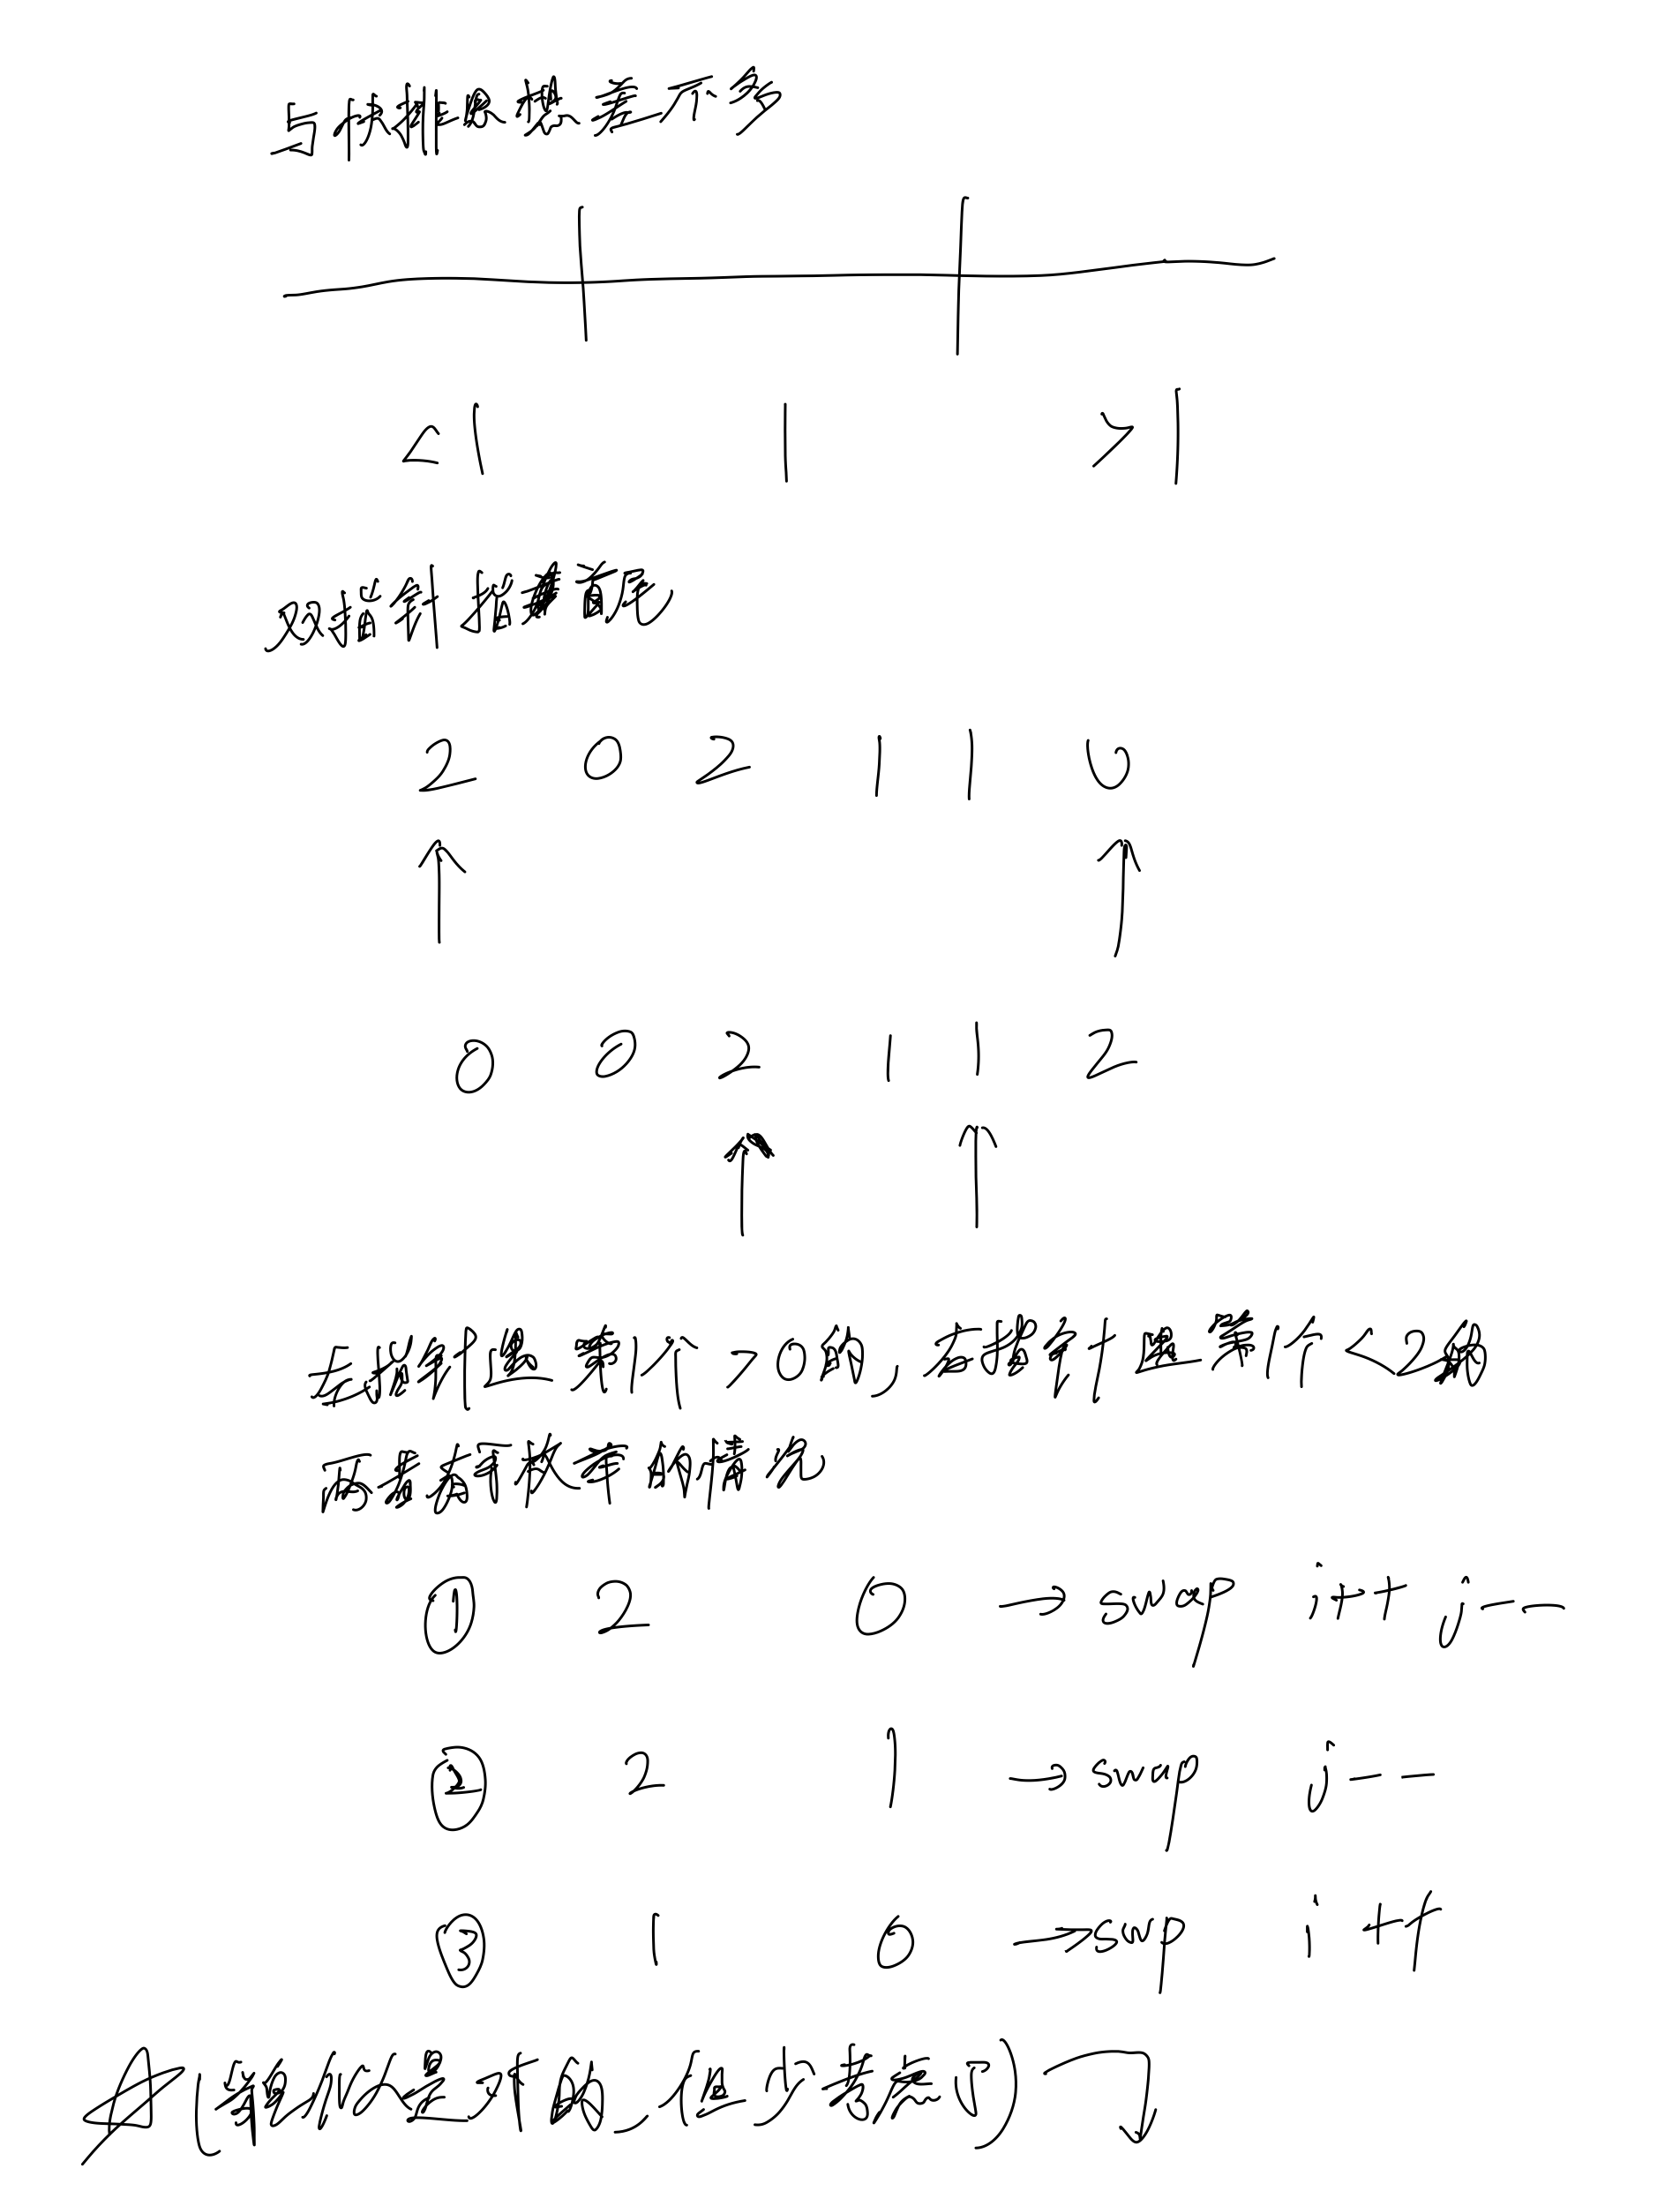 与快排思想差不多
<1 1 >1
双指针指着首尾
2 0 2 1 1 0
0 0 2 1 1 2
左指针遇第1个>0的,右指针遇第1个<2的
两者有效率的情况
① 2 0 → swap i++ j--
② 2 1 → swap j--
③ 1 0 → swap i++
(貌似是对的,但少考虑了)